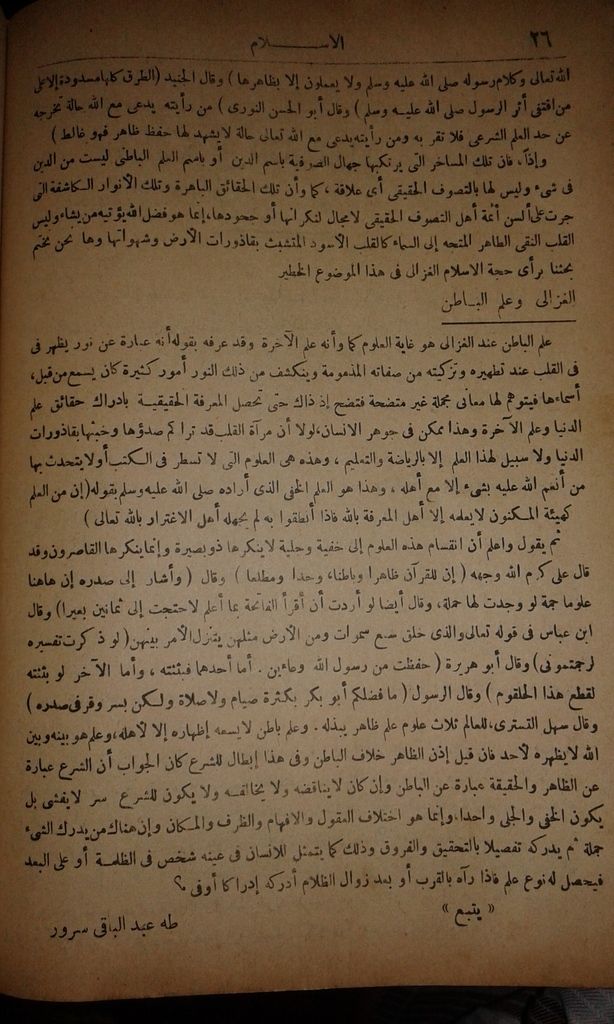 ٢٦
الاســـــلام
الله تعالى وكلام رسوله صلى الله عليه وسلم ولا يعملون إلا بظاهرها ) وقال الجنيد (الطرق كلها مسدودة إلا على
من اقتفى أثر الرسول صلى الله عليـه وسلم ) وقال أبو الحسن النورى ) من رأيته يدعى مع الله حالة تخرجه
عن حد العلم الشرعى فلا تقربه ومن رأيته يدعى مع الله تعالى حالة لا يشهد لها حفظ ظاهر فهو غالط )
وإذاً، فان تلك المساخر التى يرتكبها جهال الصوفية باسم الدين أو باسم العلم الباطنى ليست من الدين
فى شىء وليس لها بالتصوف الحقيقى أى علاقة ، كما وأن تلك الحقائق الباهرة وتلك الأنوار الكاشفة التى
جرت على ألسن أئمة أهل التصوف الحقيقى لا مجال لنكرانها أو جحودها، إنما هو فضل الله يؤتيه من يشاء وليس
القلب النقى الطاهر المتجه إلى السماء كالقلب الأسود المتشبث بقاذورات الأرض وشهواتها وها نحن نختم
بحثنا برأى حجة الاسلام الغزالى فى هذا الموضوع الخطير
الغزالى وعلم البـاطن
علم الباطن عند الغزالى هو غاية العلوم كما وأنه علم الآخرة وقد عرفه بقوله أنه عبارة عن نور يظهر فى
فى القلب عند تطهيره وتزكيته من صفاته المذمومة وينكشف من ذلك النور أمور كثيرة كان يسمع من قبل،
أسماءها فيتوهم لها معانى مجملة غير متضحة فتتضح إذ ذاك حتى تحصل المعرفة الحقيقيـة بادراك حقائق علم
الدنيا وعلم الآخرة وهذا ممكن فى جوهر الانسان، لولا أن مرآة القلب قد تراكم صدؤها وخبثها بقاذورات
الدنيا ولا سبيل لهذا العلم إلا بالرياضة والتعليم ، وهذه هى العلوم التى لا تسطر فى الكتب أو لا يتحدث بها
من أنعم الله عليه بشىء إلا مع أهله ، وهذا هو العلم الخفى الذى أراده صلى الله عليه وسلم بقوله (إن من العلم
كهيئة المكنون لا يعلمه إلا أهل المعرفة بالله فاذا أنطقوا به لم يجهله أهل الاغترار بالله تعالى )
ثم يقول واعلم أن انقسام هذه العلوم إلى خفية وجلية لا ينكرها ذو بصيرة وإنما ينكرها القاصرون وقد
قال على كرم الله وجهه ( إن للقرآن ظاهرا وباطنا، وحدا ومطلعا ) وقال ( وأشار إلى صدره إن هاهنا
علوما جمة لو وجدت لها حملة، وقال أيضا لو أردت أن أقرأ الفاتحة بما أعلم لاحتجت إلى ثمانين بعيرا) وقال
ابن عباس فى قوله تعالى والذى خلق سبع سموات ومن الأرض مثلهن يتنزل الأمر بينهن ( لو ذكرت تفسيره
لرجمتمونى) وقال أبو هريرة ( حفظت من رسول الله وعاءين . أما أحدهما فبثثته ، وأما الآخر لو بثثته
لقطع هذا الحلقوم ) وقال الرسول ( ما فضلكم أبو بكر بكثرة صيام ولا صلاة ولكن بسر وقر فى صدره )
وقال سهل التسترى، للعالم ثلاث علوم علم ظاهر يبذله . وعلم باطن لا يسعه إظهاره إلا لأهله، وعلم هو بينه وبين
الله لا يظهره لأحد فان قيل إذن الظاهر خلاف الباطن وفى هذا إبطال للشرع كان الجواب أن الشرع عبارة
عن الظاهر والحقيقة عبارة عن الباطن وإن كان لا يناقضه ولا يخالفـه ولا يكون للشرع سر لا يفشى بل
يكون الخفى والجلى واحدا، وإنما هو اختلاف العقول والافهام والظرف والمـكان وإن هناك من يدرك الشىء
جملة ثم يدركه تفصيلا بالتحقيق والفروق وذلك كما يتمثل للانسان فى عينه شخص فى الظلمـة أو على البعد
فيحصل له نوع علم فاذا رآه بالقرب أو بعد زوال الظلام أدركه إدراكا أوفى ؟
« يتبع »
طه عبد الباقى سرور